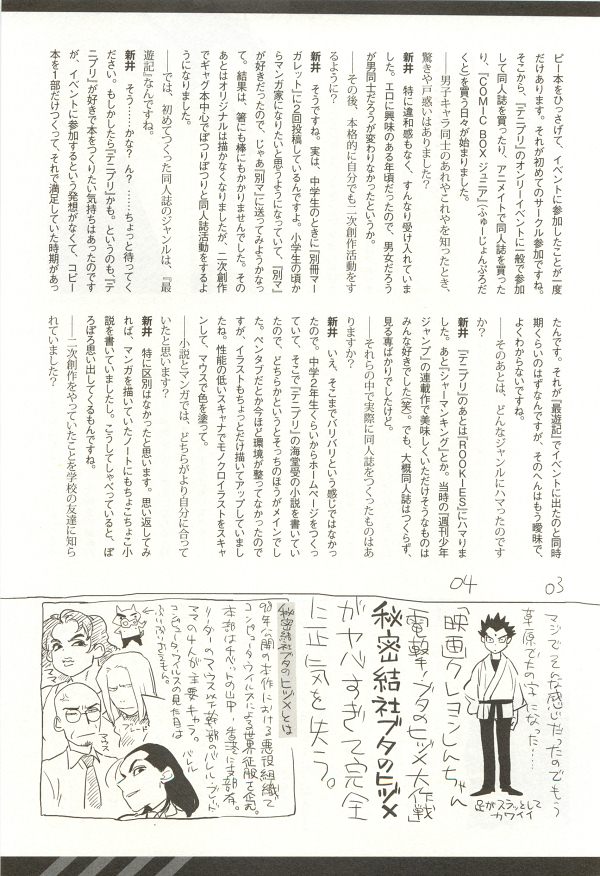 ピー本をひっさげて、イベントに参加したことが一度
だけあります。それが初めてのサークル参加ですね。
そこから、『テニプリ』のオンリーイベントに一般で参加
して同人誌を買ったり、アニメイトで同人誌を買った
り、『COMIC BOX ジュニア』(ふゅーじょんぷろだ
くと)を買う日々が始まりました。
――男子キャラ同士のあれやこれやを知ったとき、
驚きや戸惑いはありました?
新井　特に違和感もなく、すんなり受け入れていま
した。エロに興味のある年頃だったので、男女だろう
が男同士だろうが変わりなかったというか。
――その後、本格的に自分でも二次創作活動をす
るように?
新井　そうですね。実は、中学生のときに『別冊マー
ガレット』に2回投稿しているんですよ。小学生の頃か
らマンガ家になりたいと思うようになっていて、『別マ』
が好きだったので、じゃあ『別マ』に送ってみようかなっ
て。結果は、箸にも棒にもかかりませんでした。その
あとはオリジナルは描かなくなりましたが、二次創作
でギャグ本中心でぽつりぽつりと同人誌活動をするよ
うになりました。
――では、初めてつくった同人誌のジャンルは、『最
遊記』なんですね。
新井　そう……かな?　ん?……ちょっと待ってく
ださい。もしかしたら『テニプリ』かも。というのも、『テ
ニプリ』が好きで本をつくりたい気持ちはあったのです
が、イベントに参加するという発想がなくて、コピー
本を1部だけつくって、それで満足していた時期があっ
たんです。それが『最遊記』でイベントに出たのと同時
期くらいのはずなんですが、そのへんはもう曖昧で、
よくわからないですね。
――そのあとは、どんなジャンルにハマったのです
か?
新井　『テニプリ』のあとは『ROOKIES』にハマりま
した。あと『シャーマンキング』とか。当時の『週刊少年
ジャンプ』の連載作で美味しくいただけそうなものは
みんな好きでした(笑)。でも、大概同人誌はつくらず、
見る専ばかりでしたけど。
――それらの中で実際に同人誌をつくったものはあ
りますか?
新井　いえ、そこまでバリバリという感じではなかっ
たので。中学2年生くらいからホームページをつくっ
ていて、そこで『テニプリ』の海堂受の小説を書いてい
たので、どちらかというとそっちのほうがメインでし
た。ペンタブだとか今ほど環境が整ってなかったので
すが、イラストもちょっとだけ描いてアップしていまし
たね。性能の低いスキャナでモノクロイラストをスキャ
ンして、マウスで色を塗って。
――小説とマンガでは、どちらがより自分に合って
いたと思います?
新井　特に区別はなかったと思います。思い返してみ
れば、マンガを描いていたノートにもちょこちょこ小
説を書いていましたし。こうしてしゃべっていると、ぽ
ろぽろ思い出してくるもんですね。
――二次創作をやっていたことを学校の友達に知ら
れていました?
03
マジでそんな感じだったのでもう
草原で大の字になった……
足がスラッとして
カワイイ
04
「映画クレヨンしんちゃん
電撃!ブタのヒヅメ大作戦」
秘密結社ブタのヒヅメ
がヤバすぎて完全
に正気を失う。
秘密結社ブタのヒヅメとは
98年公開の本作における悪役組織で
コンピュータウイルスによる世界征服を企む。
本部はチベットの山中・香港に支部有。
リーダーのマウス以下幹部のバレル・ブレード
ママの4人が主要キャラ。
コンピュータウイルスの見た目は
ぶりぶりざえもん。
バレル
ブレード
マウス